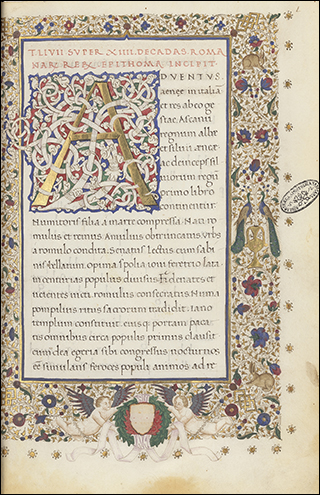 T. LIVII SVPER XIIII. DECADAS ROMA
NAR REX EPITHOMA INCIPIT
ADVENTVS
aeneę in italiā
et res ab eo ge
stae. Ascanii
regnum albae
et silui
ac deinceps sil
uiorum regū
primo libro
continentur
Numitoris filia a marte compressa. Nati ro
mulus et remus. Amulius obtruncatus. Vrbs
a romulo condita. Senatus lectus. cum sabi
nis bellatum. opima spolia ioui feretrio lata
in centurias populus diuisus. Fidenates et
ueientes uicti. romulus consecratus. Numa
pompilius ritus sacrorum tradidit. iano
templum constituit. eiusq portam paca
tis omnibus circa populis primus clausit
cum dea egeria sibi congressus nocturnos
eē simulans feroces populi animos ad re